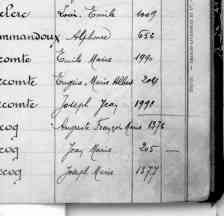 clerc Louis, Emile 1009
ommandoux Alphonse 652
comte Emile Marie 1990
ecomte Eugène, Marie, Albert 204
ecomte Joseph Jean 1990
ecoq Auguste François Marie 1376
ecoq Jean Marie 205 —
ecoq Joseph Marie 1377